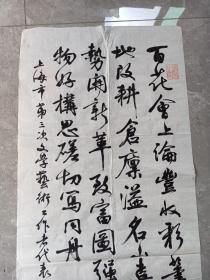 百花會上論豐收彩筆
地改耕倉廩溢名
勢開新革致富圖強
物好構思磋切寫同丹
上海市第三次文學藝術工作者代表